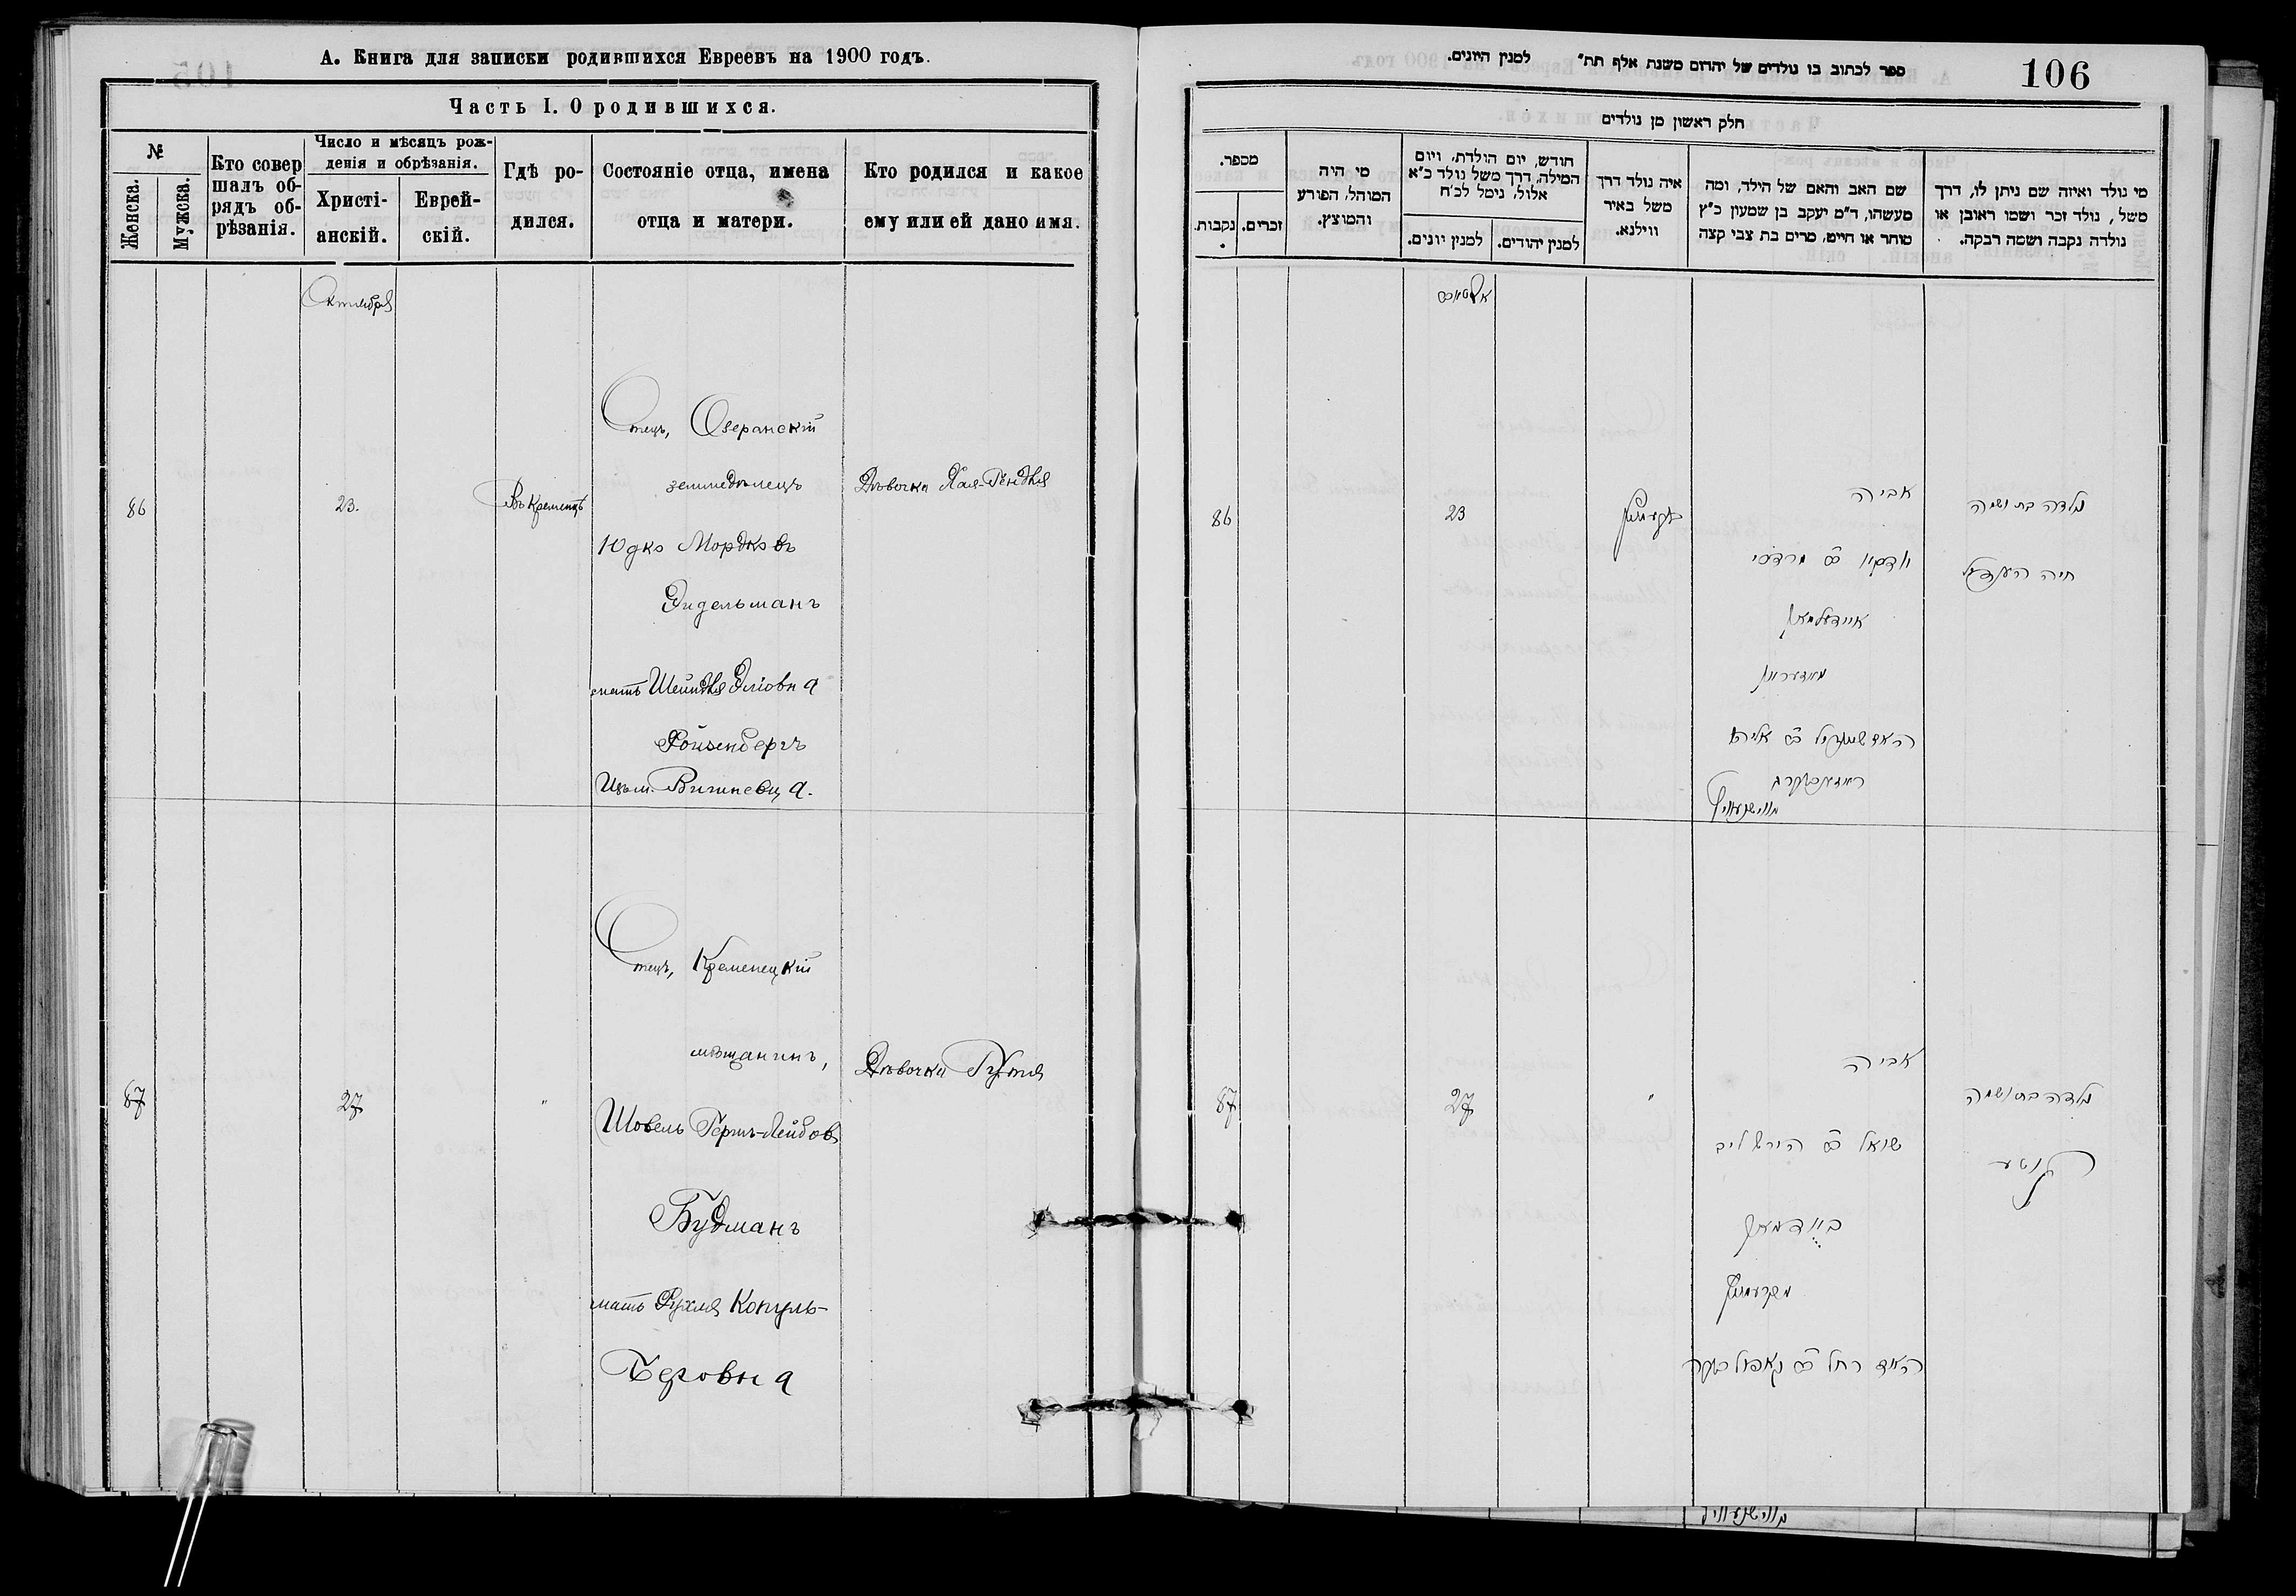 А. Книга для записки родившихся Евреевъ на 1900 годъ.
Часть I. О родившихся.
№
Женска.
Мужска.
Кто совер
шалъ об-
рядъ об-
рѣзанія.
Число и мѣсяцъ рож-
денія и обрѣзанія.
Христі-
анскій.
Еврей-
скій.
Гдѣ ро-
дился.
Состояніе отца, имена
отца и матери.
Кто родился и какое
ему или ей дано имя.
Октября
86
23.
Въ Кременцѣ
Отецъ, Озеранскій
земледѣлецъ
Юдко Мордковъ
Эйдельманъ
мать Шейндля Эліовна
Ройзенбергъ
Изъ м. Вишневца.
Дѣвочка Хая-Гендля
87
27
"
Отецъ, Кременецкій
мѣщанинъ,
Шовель Гершъ-Лейбовъ
Будманъ
мать Рухля Копуль-
Беровна
Дѣвочка Гутя
106
ספר לכתוב בו נולדים של יהדום משנת אלף תת״ למנין היונים.
חלק ראשון מן נולדים
מספר.
נקבות.
זכרים.
מי היה
המוהל, הפורע
והמוצץ.
חודש, יום הולדת, ויום
המילה, דרך משל נולד כ״א
אלול, נימל לכ״ח
למנין יונים.
למנין יהודים.
איה נולד דרך
משל באיר
ווילנא.
שם האב והאם של הילד, ומה
מעשהו, ד״מ יעקב בן שמעון כ״ץ
סוחר או חייט, מרים בת צבי קצה
מי נולד ואיזה שם ניתן לו, דרך
משל, נולד זכר ושמו ראובן או
נולדה נקבה ושמה רבקה.
86
23
אביה
יודקא ב״ר מרדכי
איידעלמאן
נולדה בת ושמה
חיה הענדיל
87
27
"
אביה
שואל ב״ר הירש ליב
בודמאן
מקרעמניץ
נולדה בת ושמה
גוטע